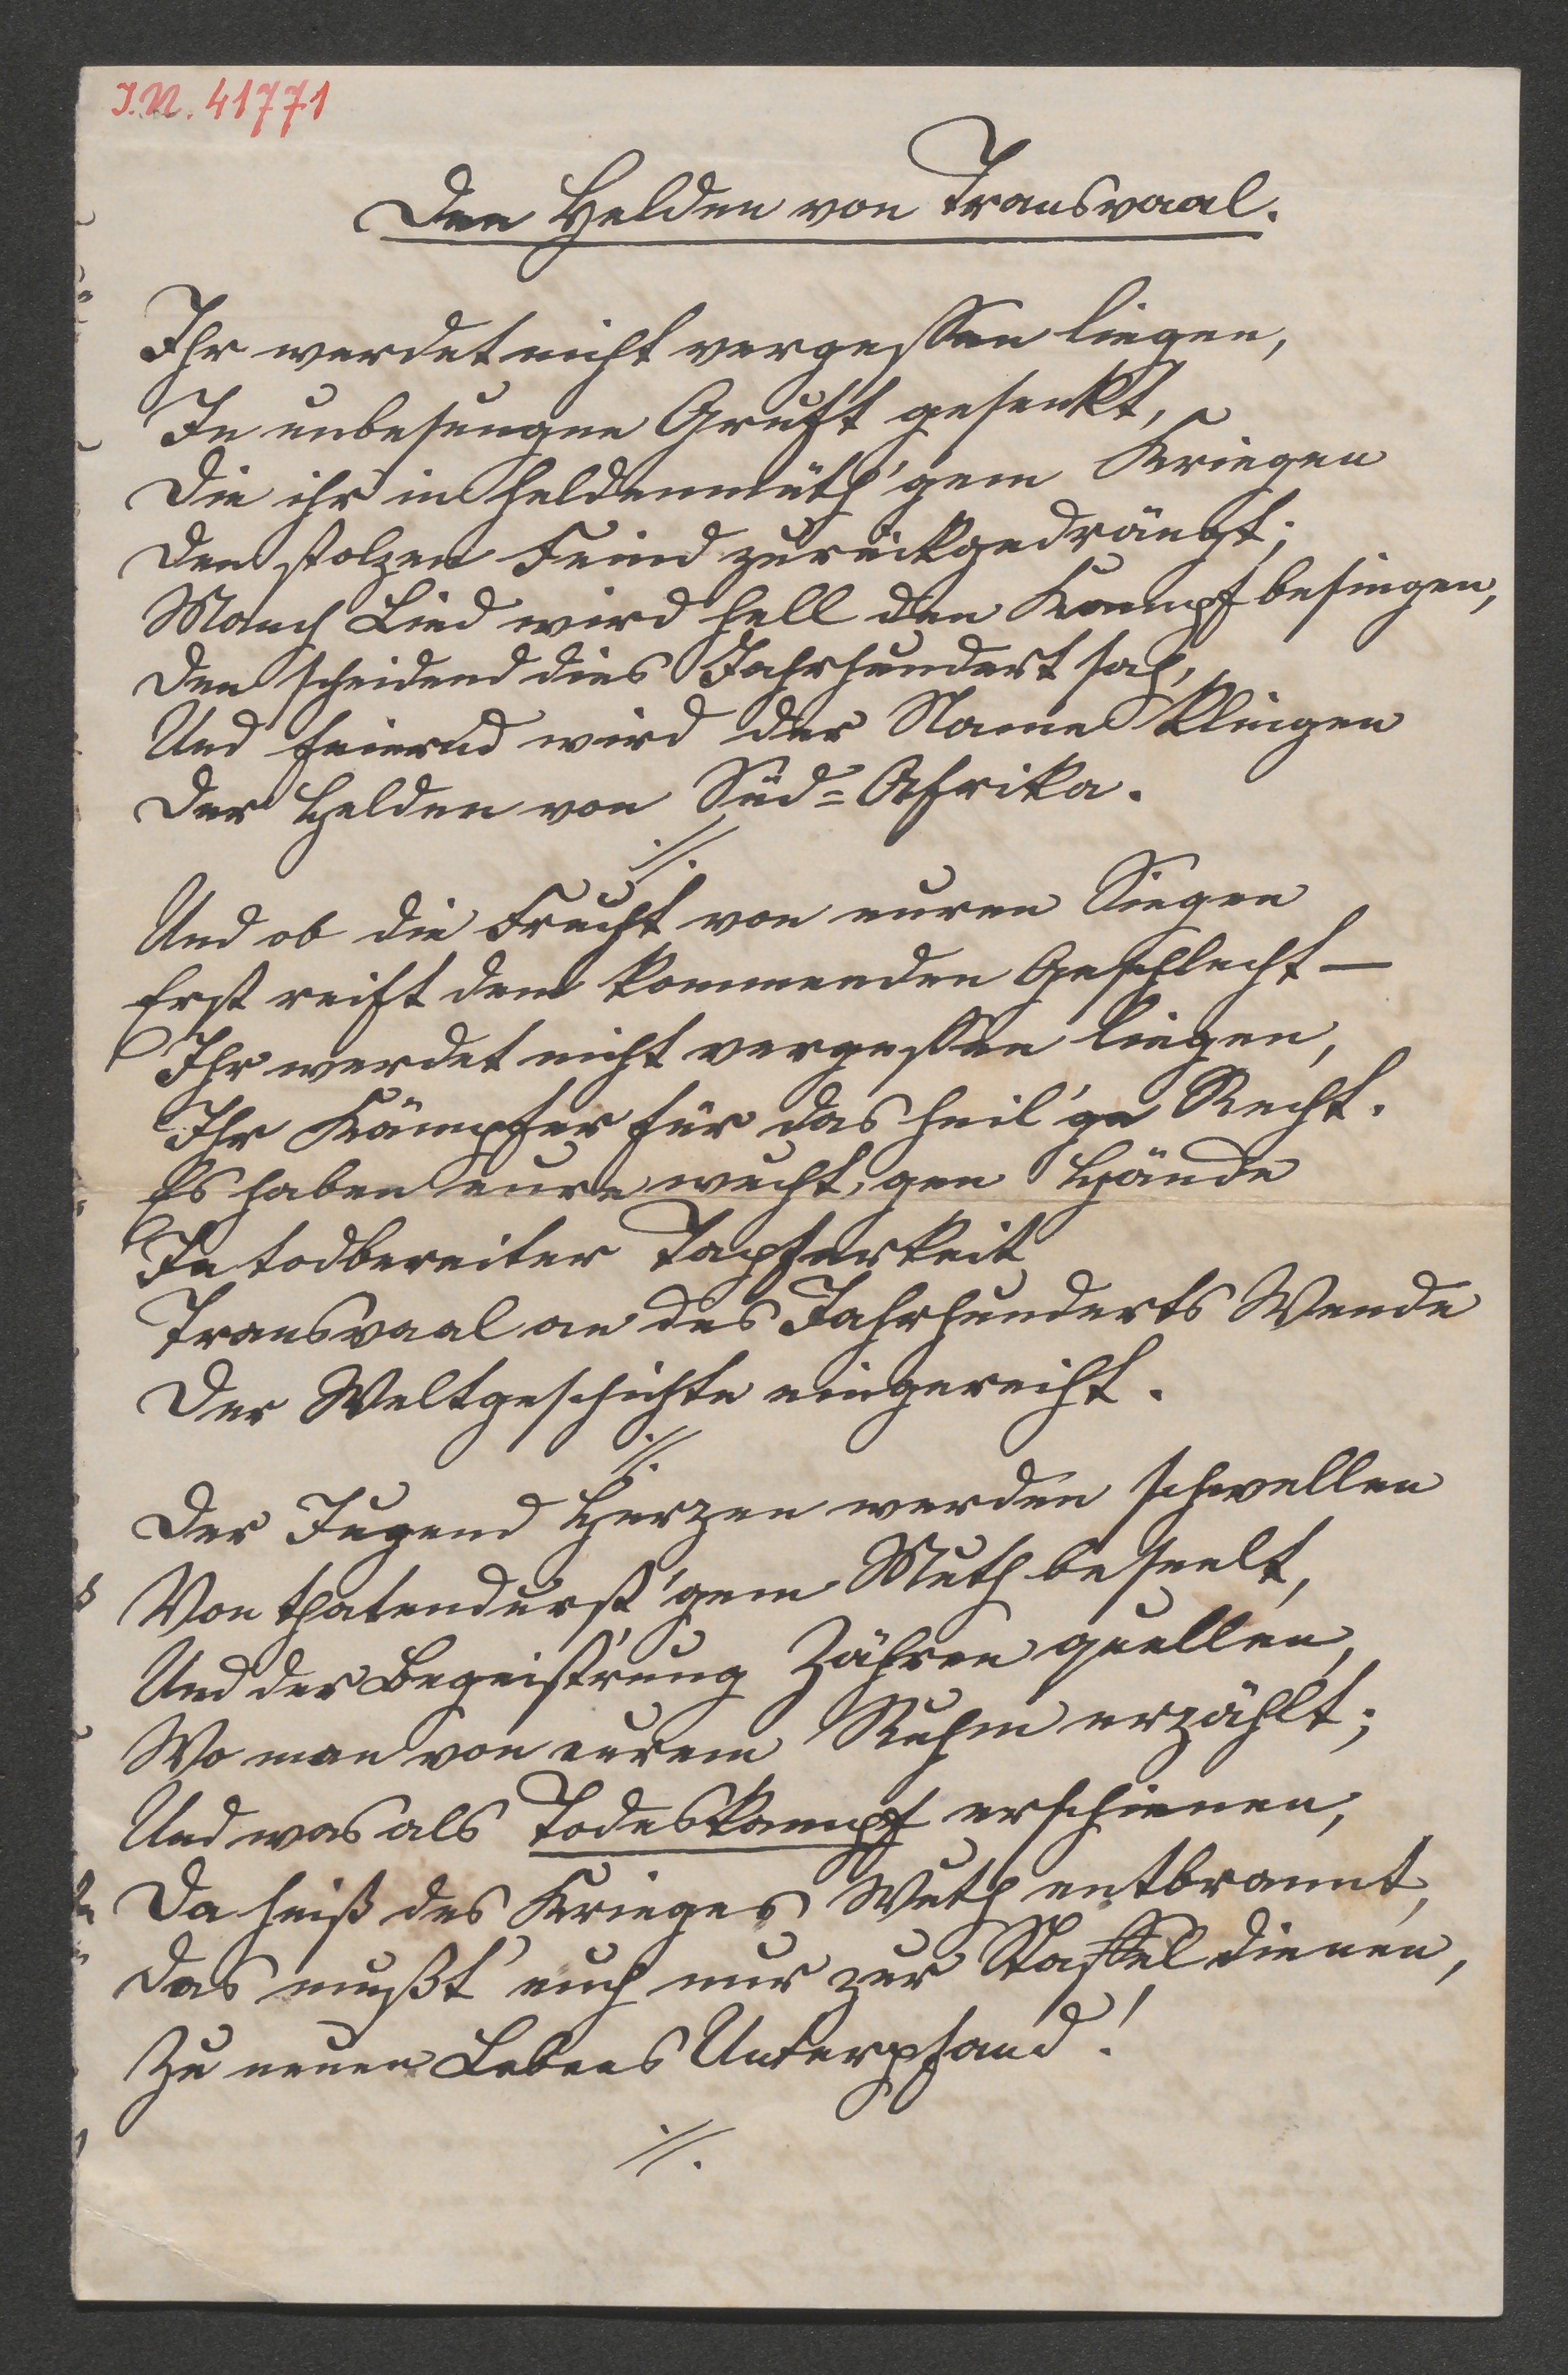 I.N. 41771
Den Helden von Transvaal.
Ihr werdet nicht vergessen liegen,
In unbesungne Gruft gesenkt,
Die ihr in heldenmüth'gem Kriegen
Den stolzen Feind zurückgedrängt;
Manch Lied wird hell den Kampf besingen,
Den scheidend dies Jahrhundert sah,
Und feiernd wird der Name klingen
Der Helden von Süd=Afrika.
./.
Und ob die Frucht von euren Siegen
Erst reift dem kommenden Geschlecht –
Ihr werdet nicht vergessen liegen,
Ihr Kämpfer für das heil'ge Recht.
Es haben eure wucht'gen Hände
In todbereiter Tapferkeit
Transvaal an des Jahrhunderts Wende
Der Weltgeschichte eingereiht.
./.
Der Jugend Herzen werden schwellen
Von thatendurst'gem Muth beseelt,
Und der Begeist'rung Zähren quellen,
Wo man von eurem Ruhm erzählt;
Und was als Todeskampf erschienen,
Da heiß des Krieges Wuth entbrannt,
Das mußt' euch nur zur Staffel dienen,
Zu neuen Lebens Unterpfand!
./.